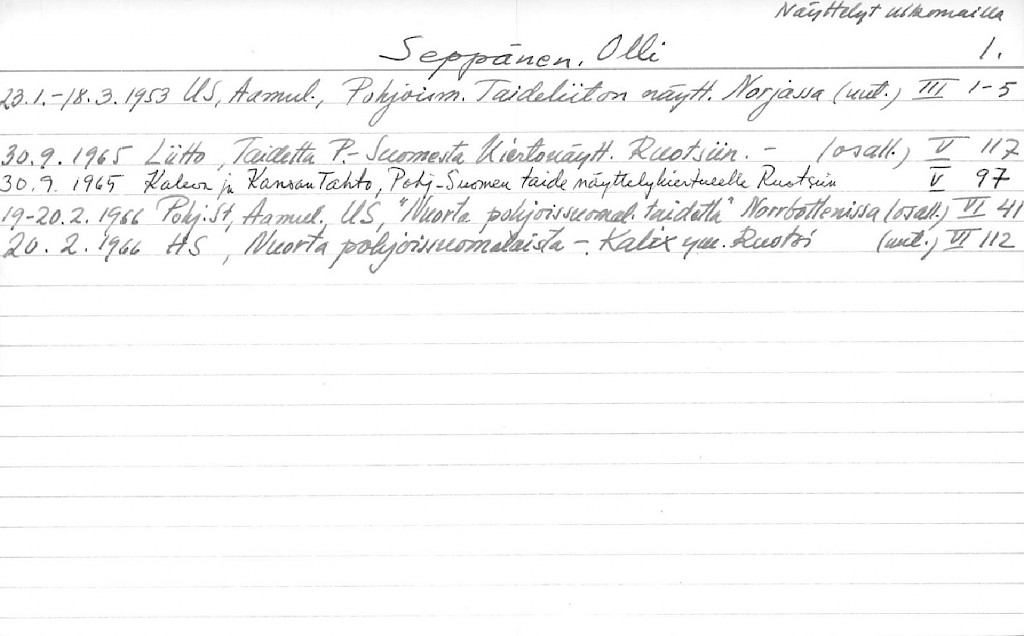 Näyttelyt ulkomailla
Seppänen, Olli 1.
23.1.-18.3.1953 US, Aamul., Pohjoism. Taideliiton näytt. Norjassa (uut.) III 1-5
30.9.1965 Liitto, Taidetta P.-Suomesta Kiertonäytt. Ruotsiin. - (osall.) V 117
30.9.1965 Kaleva ja Kansan Tahto, Pohj-Suomen taide näyttelykiertueelle Ruotsiin V 97
19-20.2.1966 Pohj.St, Aamul. US, "Nuorta pohjoissuomal. taidetta" Norrbottenissa (osall.) VI 41
20.2.1966 HS, Nuorta pohjoissuomalaista -. Kalix ym. Ruotsi (uut.) VI 112